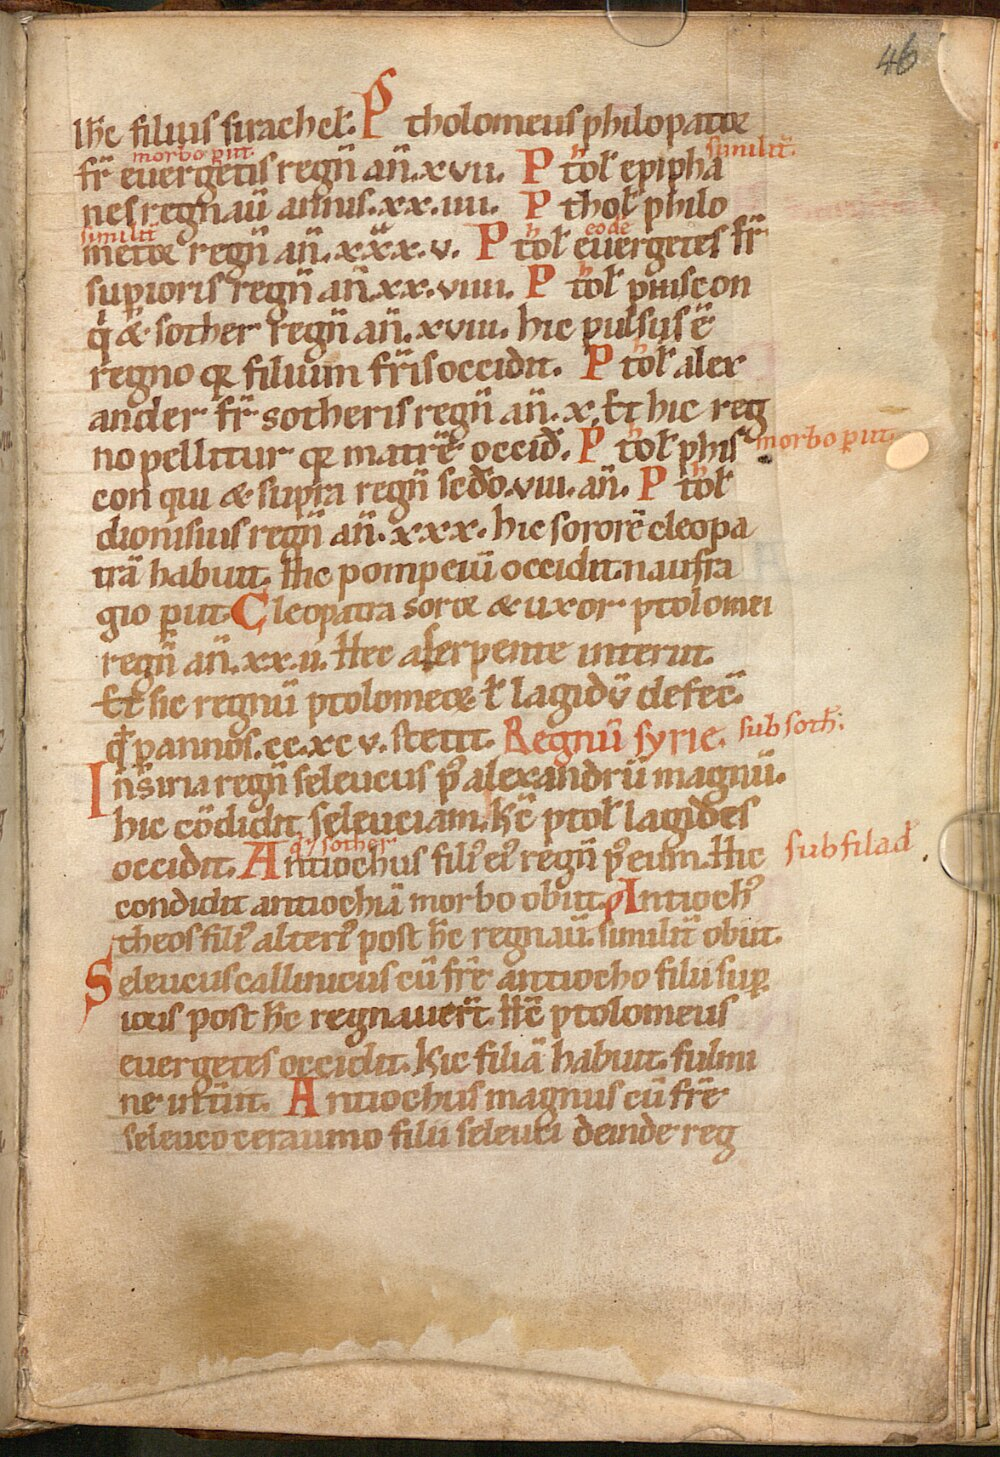 46
Ih̄c filius sirach cl̄. Ptholomeus philopator
morbo p̱iit. similit̄.
fr̄ euergetis regn̄ an̄. xvii. P tol̄ epipha
nes regnau̅ annis. xx. iiii. P thol̄ philo
similit̄ eodē
metor regn̄ an̄. xxx. v. P tol̄ euergetes fr̄
sup̱ioris regn̄ an̄. xx. viiii. P tol̄ phiscon
q̇ & sother regn̄ an̄. xviii. hic pulsus ē
regno qr filium fr̄is occidit. P tol̄ alex
ander fr̄ sotheris regn̄ an̄. x. Et hic reg
no pellitur qr matrē occid̄. P tol̄ phis morbo p̱iit.
con qui & supra regn̄ sed̄o. viii. an̄. P tol̄
dionisius regn̄ an̄. xxx. hic sororē cleopa
trā habuit. Hic pompeiū occidit. naufra
gio p̱iit. Cleopatra soror & uxor ptolomei
regn̄ an̄. xx. ii. Hec a serpente interiit.
Et sic regnū ptolomeor̄ l̄ lagidū defec̄.
qd̄ p̱ annos. cc. xc v. stetit. Regnū syrie. sub soth̄.
In siria regn̄ seleucus p̄ alexandrū magnū.
hic cōdidit seleuciam. h̄c ptol̄ lagides
q̇ sother
occidit. Antiochus fili' ei' regn̄ p' eum. Hic sub filad̄.
condidit antiochiā morbo obiit. Antioch'
theos fili' alteri' post h̄c regnau̅. similit̄ obiit.
Seleucus callinicus cū fr̄e antiocho filii sup̱
ioris post h̄c regnauer̄t. H̄c ptolomeus
euergetes occidit. Hic filiā habuit. fulmi
ne int̄iit. Antiochus magnus cū fr̄e
seleuco ceraunno filii seleuci deinde reg